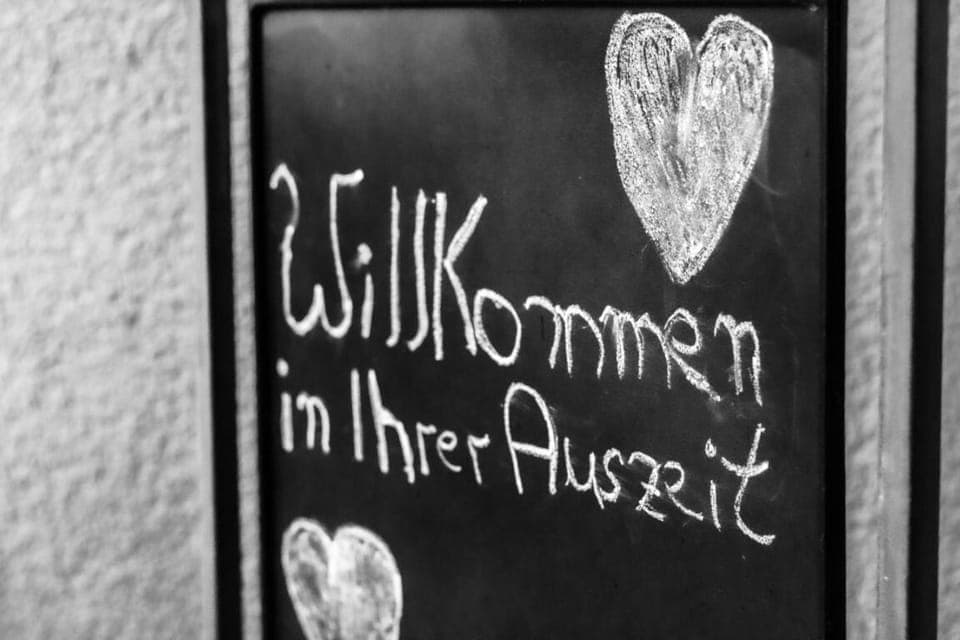 Willkommen
in Ihrer Auszeit